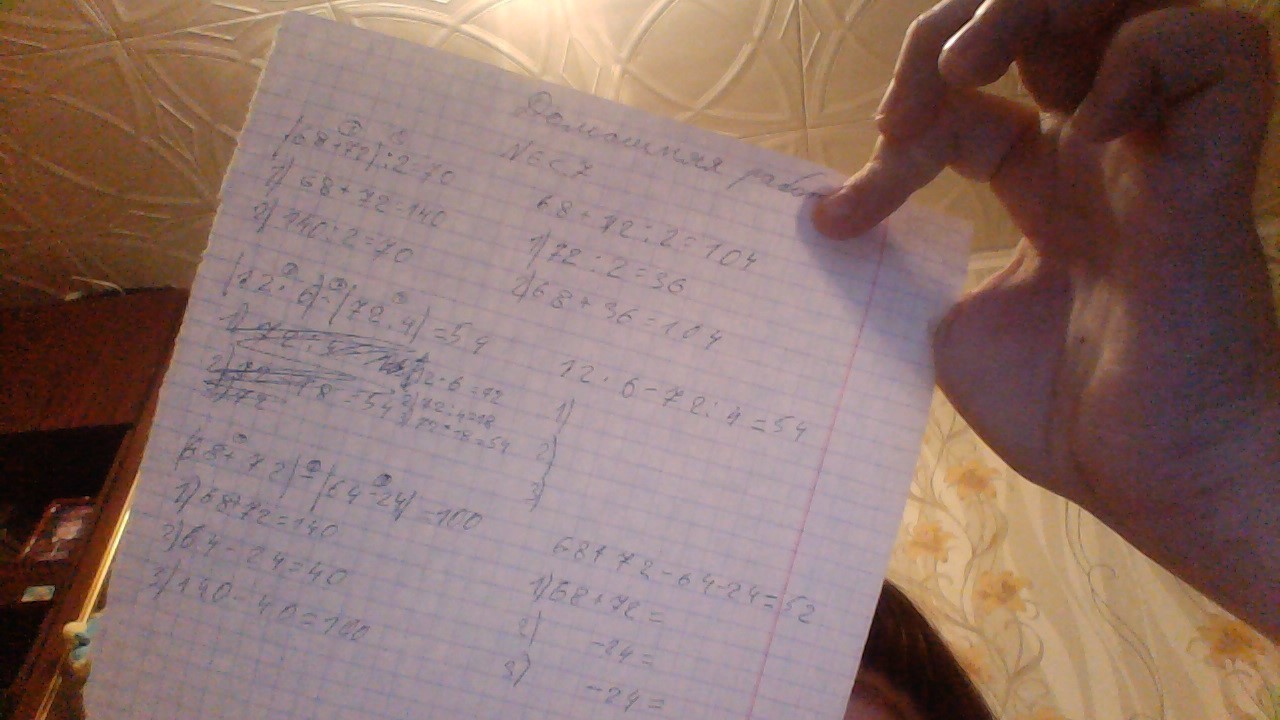 Домашняя работ
(68+72):2=70
1) 68+72=140
2) 140:2=70
68+72:2=104
1) 72:2=36
2) 68+36=104
(12·6)-(72:4)=54
1) 12·6=72
2) 72:4=18
3) 72-18=54
12·6-72:4=54
1)
2)
3)
(68+72)-(64-24)=100
1) 68+72=140
2) 64-24=40
3) 140-40=100
68+72-64-24=52
1) 68+72=
2) -24=
3) -24=